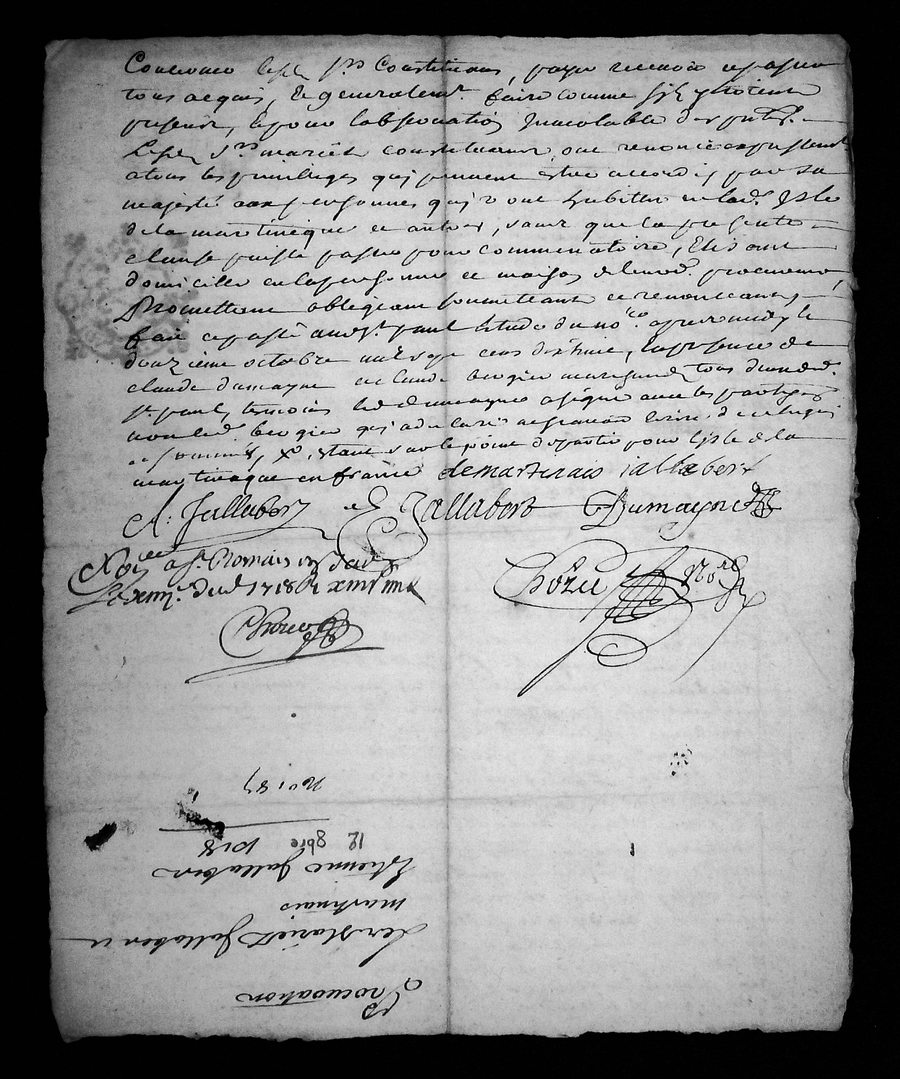 lesd. srs Constituans, payer recevoir et passer
tous acquis, et generalemt. faire comme sils y etoient
presens, et pour lobservation Inviolable des pntes.
Lesd. srs mariés constituans, ont renoncé expressemt
a tous les privileges qui peuvent estre accordés par sa
majesté aux personnes qui vont habitter en lad. Isle
de la martinique et autres, sans que la presente
clause puisse passer pour commentoire, Elisant
domicille en la personne et maison de leurd. procureur
Promettans obligeans soumettans et renonceans,
fait et passé aud. st. paul estude du nore. apres midy le
douzieme octobre mil sept cens dix huit, En presence de
claude dumayne et claude bergier marchand tous deux dud.
st. paul, tesmoins led. dumayne a signé avec les parties
non led. bergier qui a declaré ne scavoir ecrire de ce enquis
et sommés, estant sur le point de partir pour lisle de la
martinique en france demartinais jallabert
A: Jallabert E Jallabert Dumayne
Nore a st. Romain
du 1718
Chorel Nore
Chorel
no. 187
12 8bre 1718
Etienne Jallabert
martinais
Les Mariez Jallabert et
Procuration